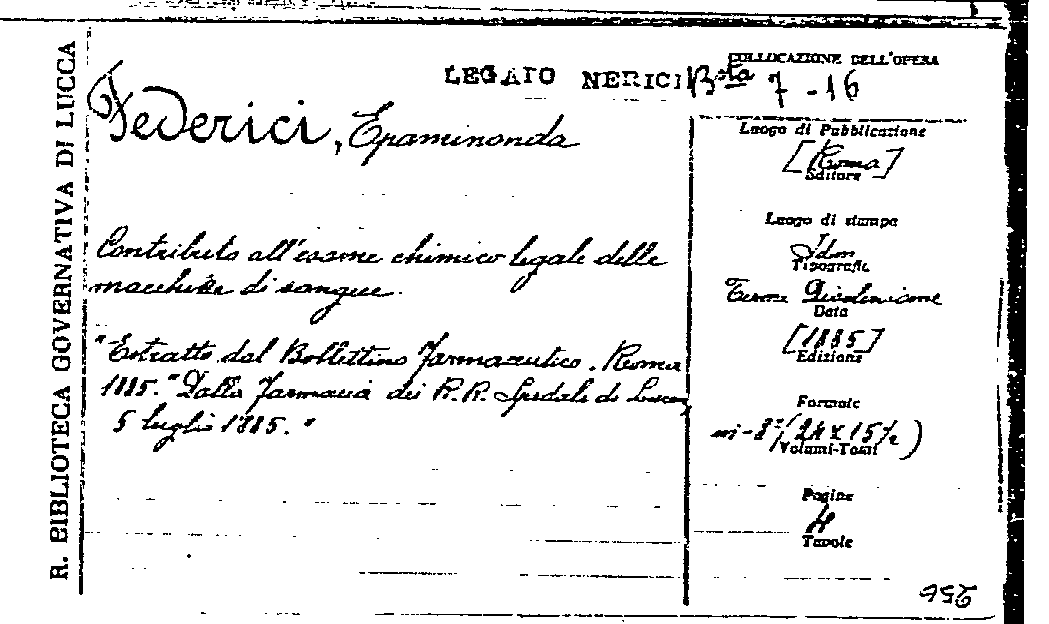 R. BIBLIOTECA GOVERNATIVA DI LUCCA
LEGATO NERICI
COLLOCAZIONE DELL'OPERA
Bsta 7-16
Federici, Epaminonda
Contributo all'esame chimico legale delle
macchie di sangue.
"Estratto dal Bollettino Farmaceutico. Roma
1885." Dalla Farmacia dei R.R. Spedali di Lucca,
5 luglio 1885."
Luogo di Pubblicazione
[Roma]
Editore
Luogo di stampa
Idem
Tipografia
Terme Diocleziane
Data
[1885]
Edizione
Formato
in-8°(24 x 15½)
Volumi-Tomi
Pagine
4
Tavole